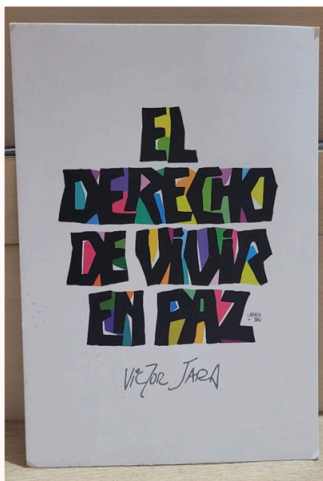 EL
DERECHO
DE ViViR
EN PAZ
VicToR JARA